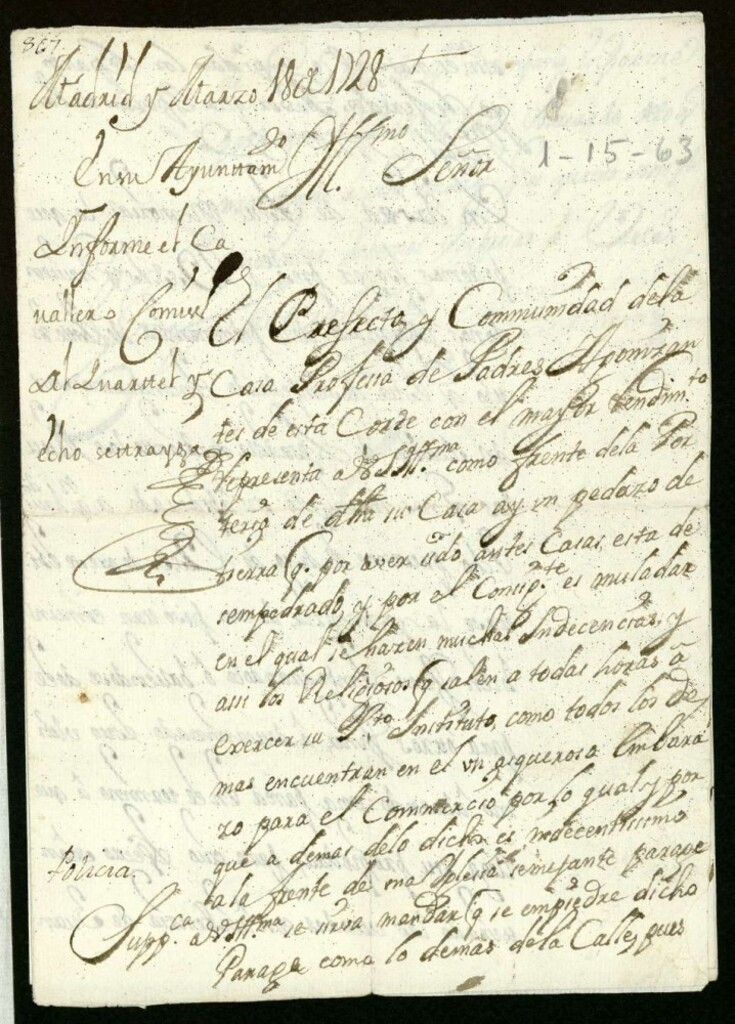 867
Madrid y Marzo 18 de 1728
En su Ayuntam.do
Informe el Ca
vallero Comis.
del Quartel y
echo se trayga
Ill.mo Señor
1-15-63
El Prefecto y Communidad de la
Casa Professa de Padres Agonizan
tes de esta Corte con el mayor Rendim.to
representa a V.S.Ill.ma como frente de la Por
tería de dha su Casa ay un pedazo de
tierra (q. por aver sido antes Casas, esta de
sempedrado, y por el Consig.te es muladar
en el qual se hazen muchas Indecencias, y
assi los Religiosos (q salen a todas horas a
exercer su Sto Instituto, como todos los de
mas encuentran en el un asqueroso embara
zo para el Commercio, por lo qual, y por
que a demas de lo dicho es indecentissimo
a la frente de una Iglesia semejante parage
Supp.ca a V.S.Ill.ma se sirva mandar (q se empiedre dicho
Parage como lo demas de la Calle, pues
Policia.